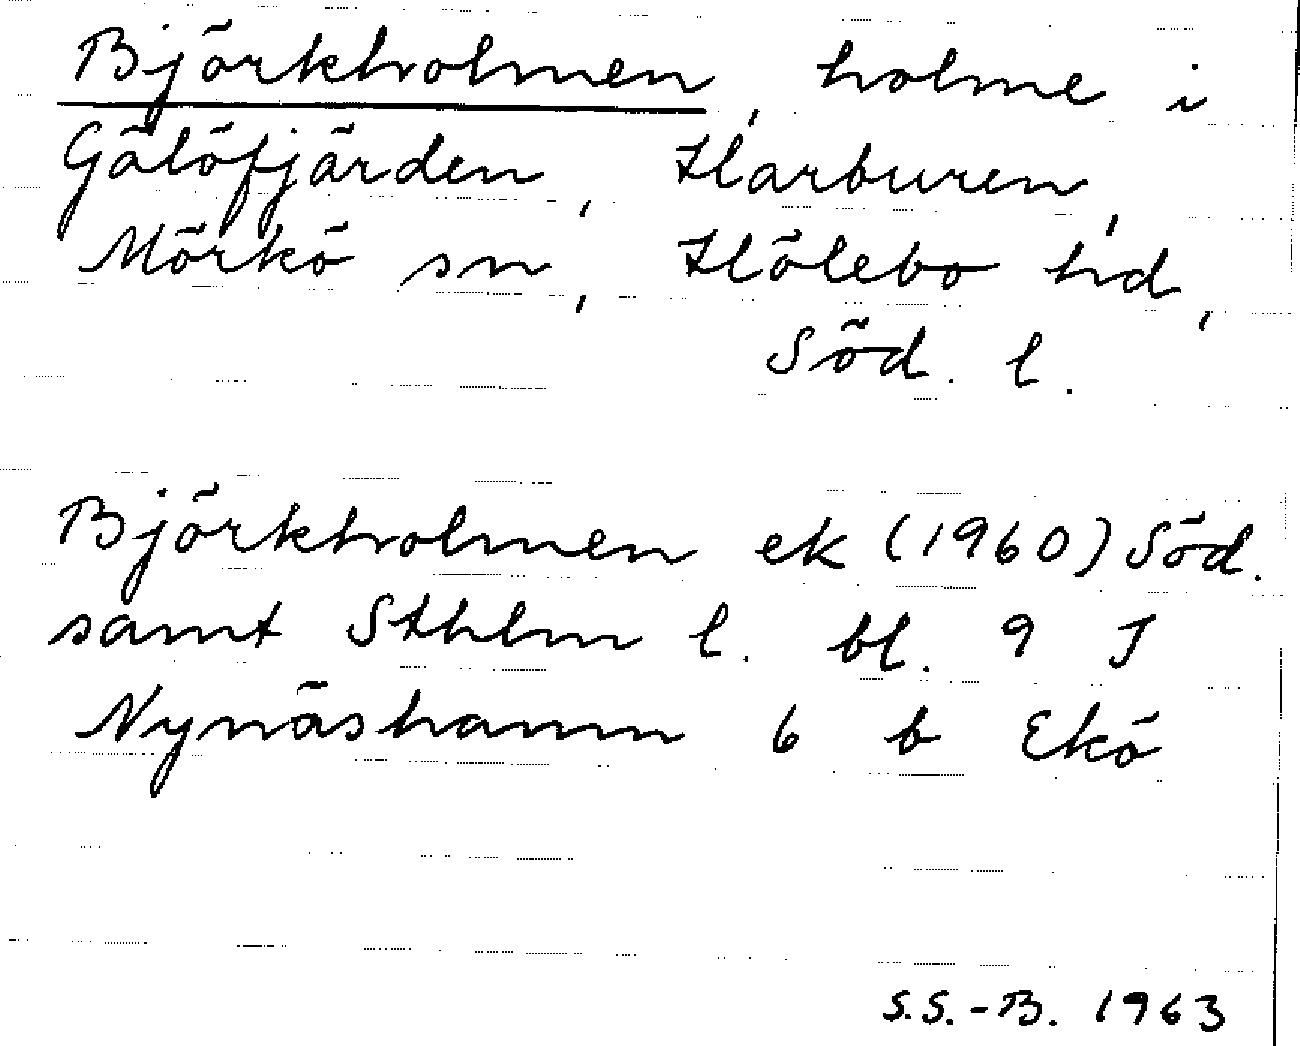 Björkholmen, holme i
Gälöfjärden, Harburen,
Mörkö sn, Hölebo hd,
Söd. l.
Björkholmen ek (1960) Söd.
samt Sthlm l. bl. 9 J
Nynäshamn 6 b Ekö
S.S.-B. 1963